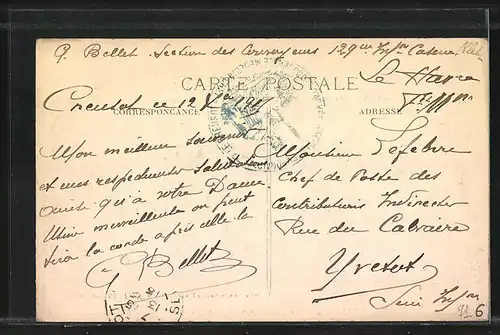 G. Bellet. Section des Convoyeurs 129me Infie Caserne Kléber
Le Havre
CARTE POSTALE
CORRESPONDANCE
ADRESSE
Creusot ce 12
Mon meilleur souvenir
et mes respectueuses salutations
ainsi qu'à votre Dame
Usine merveilleuse on peut
tirer la corde après elle là
G Bellet
Monsieur Lefebvre
Chef de Poste des
Contributions Indirectes
Rue du Calvaire
Yvetot
Seine Infre
716